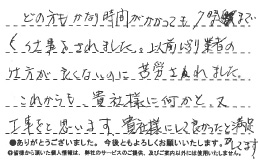 どの方もかなり時間がかかっても、最後まで
く仕事をされました。以前より業者の
仕方がよくないのに苦労されました。
これからも貴社様に何かと、又
工事をと思います。貴社様にして良かったと満足
してます
●ありがとうございました。今後ともよろしくお願いいたします。
◎皆様から頂いた個人情報は、弊社のサービスのご提供、及びご案内以外には使用いたしません。